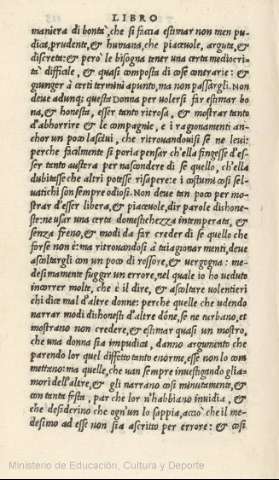 LIBRO
maniera di bontà, che si faccia estimar non men pu-
dica, prudente, & humana, che piaceuole, arguta, &
discreta: & però le bisogna tener una certa mediocri-
tà difficile, & quasi composta di cose contrarie: &
giunger à certi termini apunto, ma non passargli. Non
deue adunq; questa Donna per uolersi far estimar bo
na, & honesta, esser tanto ritrosa, & mostrar tanto
d'abhorrire & le compagnie, e i ragionamenti an-
chor un poco lasciui, che ritrouandouisi se ne leui:
perche facilmente si poria pensar ch'ella fingesse d'es-
ser tanto austera per nascondere di se quello, ch'ella
dubitasse che altri potesse risapere: e i costumi cosi sel-
uatichi son sempre odiosi. Non deue tan poco per mo-
strar d'esser libera, & piaceuole, dir parole dishone-
ste: ne usar una certa domestichezza intemperata, &
senza freno, & modi da far creder di se quello che
forse non è: ma ritrouandosi à tai ragionamenti, deue
ascoltargli con un poco di rossore, & uergogna: me-
desimamente fuggir un errore, nel quale io ho ueduto
incorrer molte, che è il dire, & ascoltare uolentieri
chi dice mal d'altre donne: perche quelle che udendo
narrar modi dishonesti d'altre dōne, se ne turbano, et
mostrano non credere, & estimar quasi un mostro,
che una donna sia impudica, danno argumento che
parendo lor quel diffetto tanto enorme, esse non lo com
mettano: ma quelle, che uan sempre inuestigando gli a-
mori dell'altre, & gli narrano cosi minutamente, &
con tante festa, par che lor n'habbiano inuidia, &
che desiderino che ogn'un lo sappia, acciò che il me-
desimo ad esse non sia ascritto per errore: & cosi
Ministerio de Educación, Cultura y Deporte